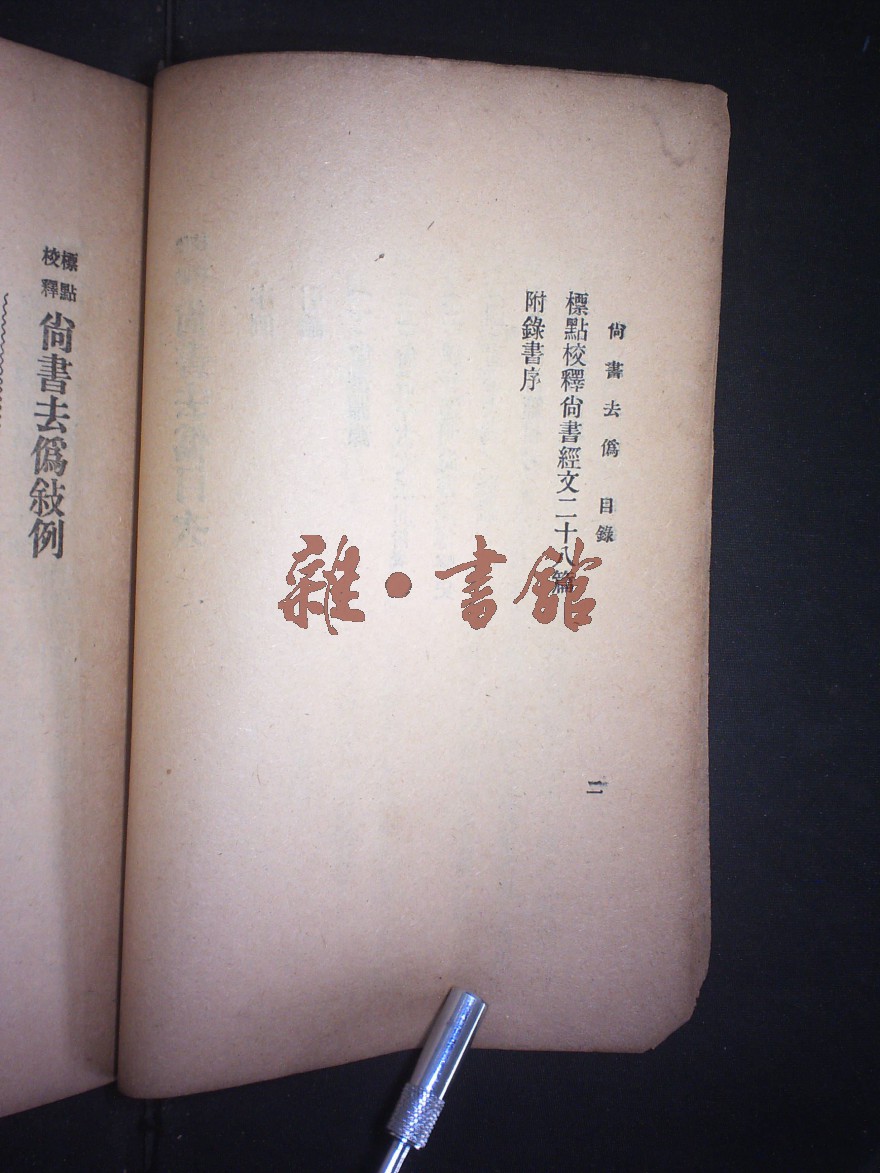 尙書去僞 目錄
標點校釋尙書經文二十八篇
附錄書序
二
標點
校釋
尙書去僞敍例
雜·書館